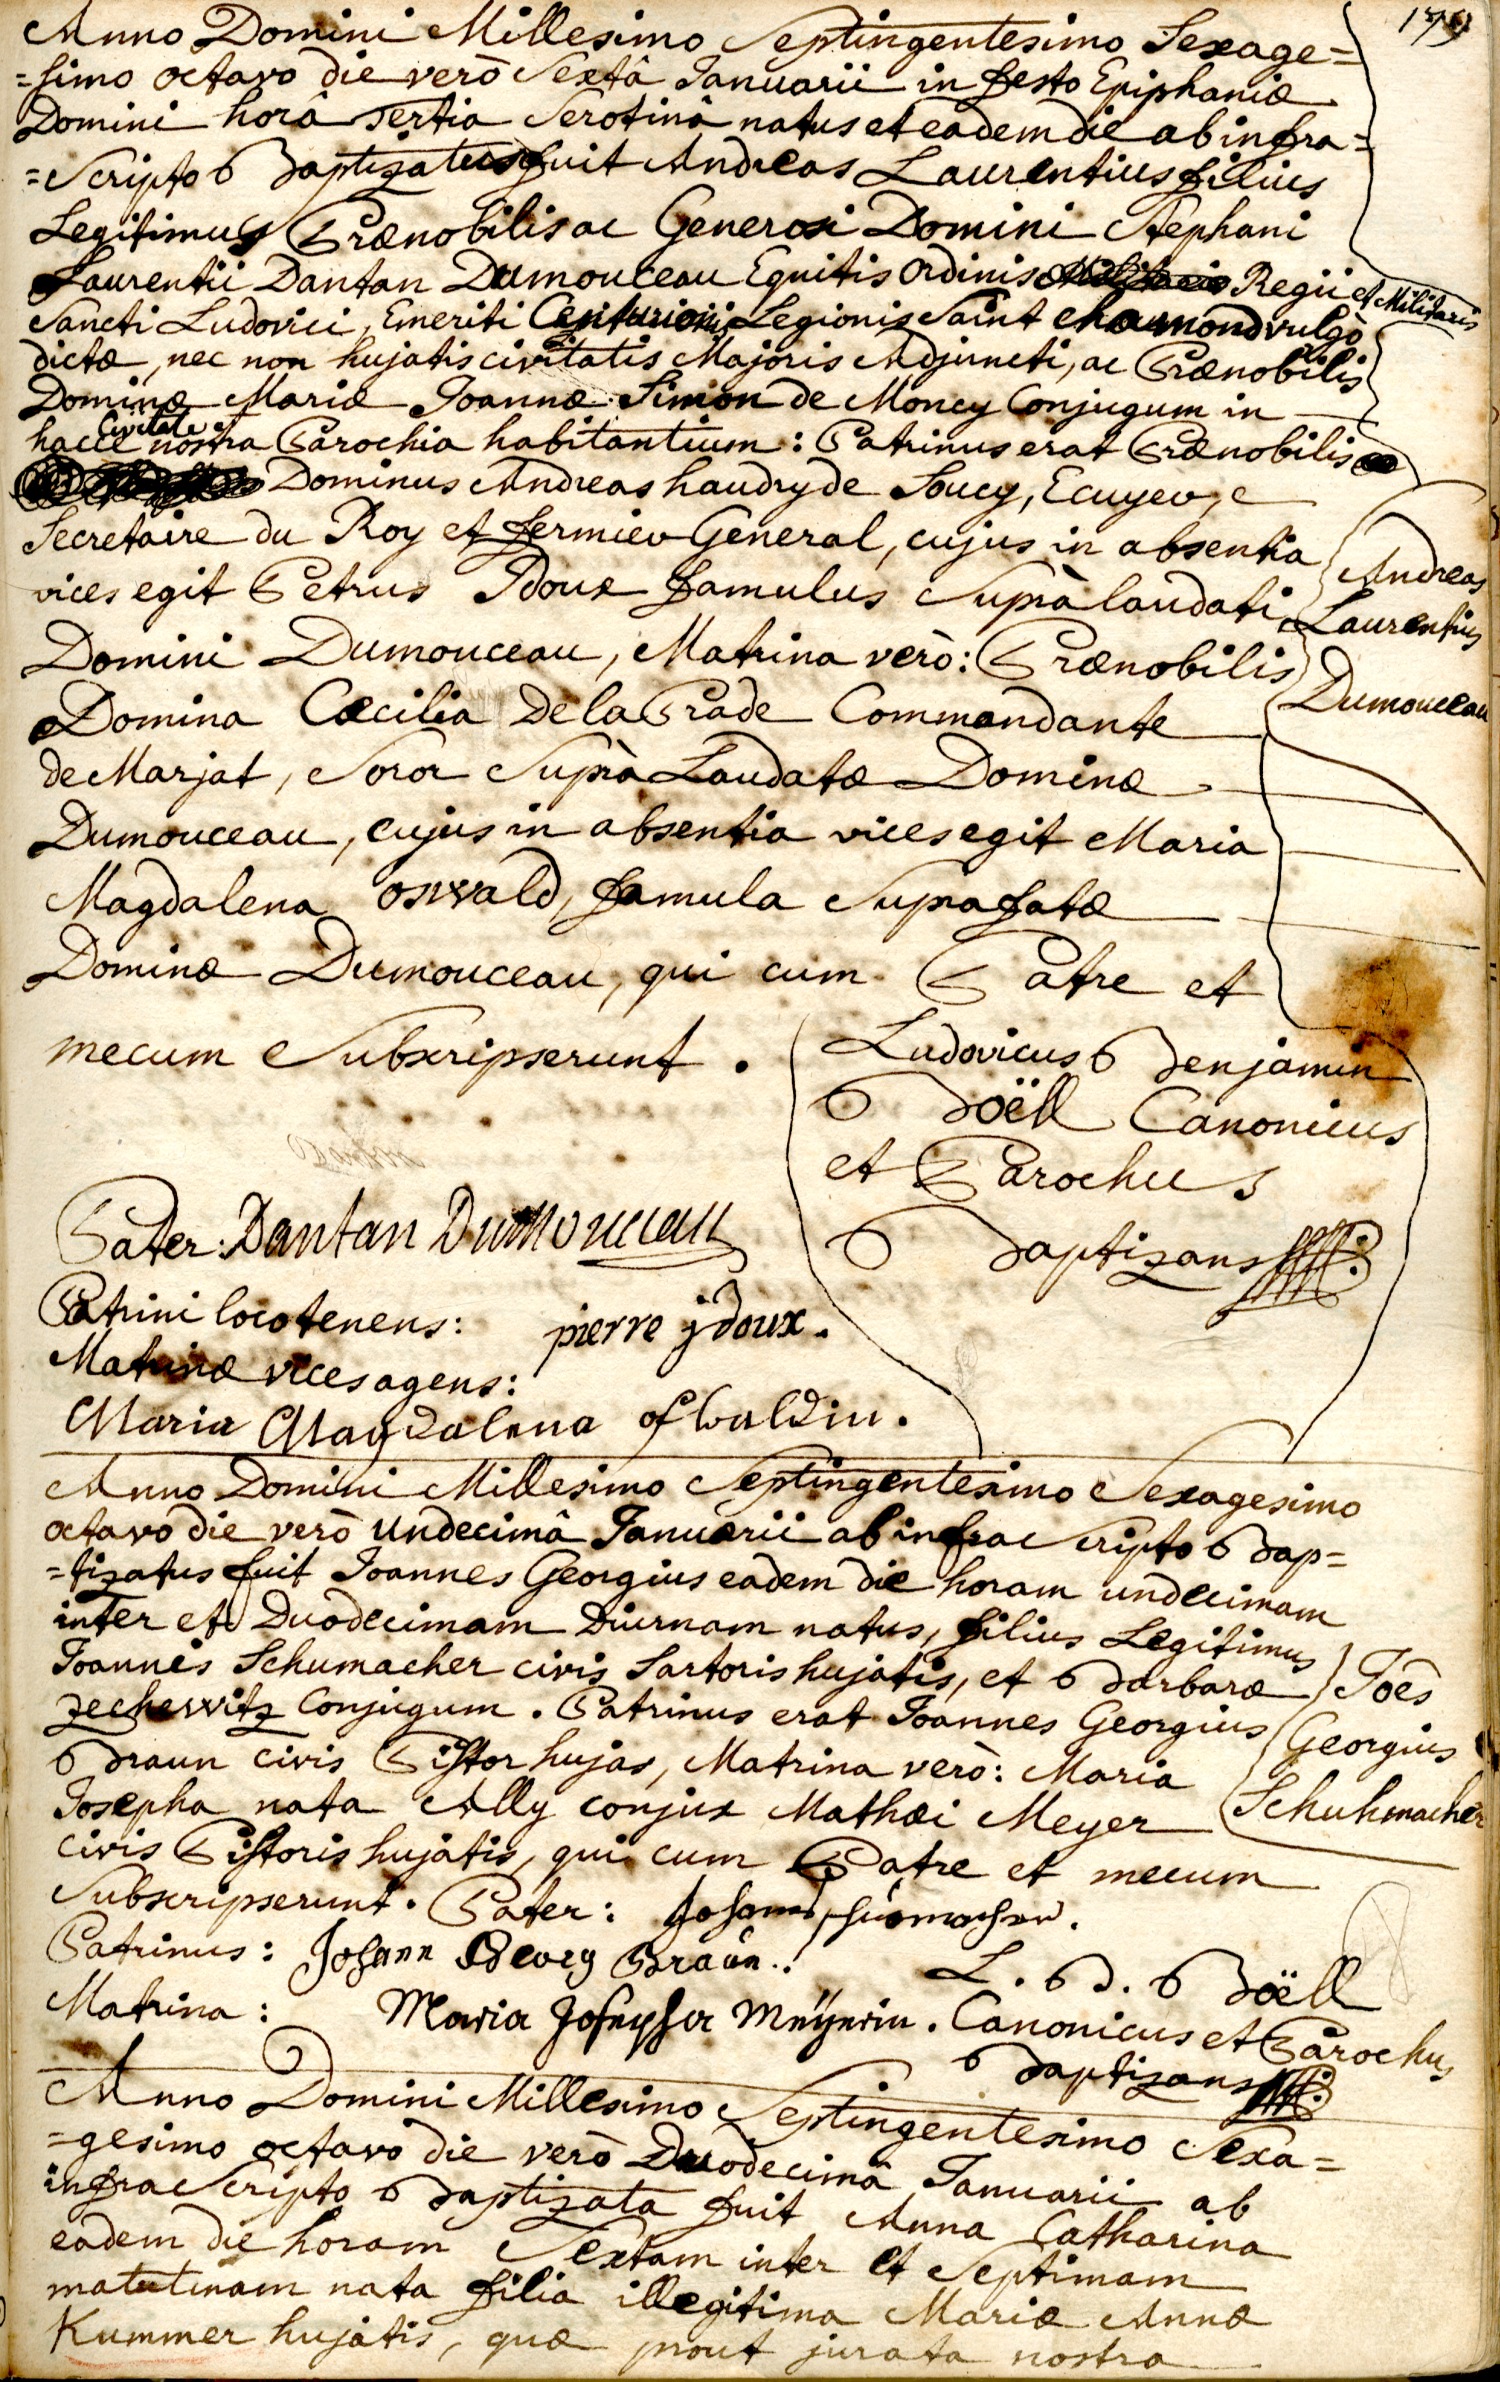 179
Anno Domini Millesimo Septingentesimo Sexage=
=simo octavo die verò Sextâ Januarii in festo Epiphaniæ
Domini horâ tertia Serotinâ natus et eadem die ab infra=
=Scripto Baptizatus fuit Andreas Laurentius filius
Legitimus Prænobilis ac Generosi Domini Stephani
Laurentii Dantan Dumouceau Equitis Ordinis Regii et Militaris
Sancti Ludovici, Emeriti Centurionis Legionis Saint chaumond vulgò
dictæ, nec non hujatis civitatis Majoris Adjuncti, ac Prænobilis
Dominæ Mariæ Joannæ Simon de Money Conjugum in
hacce Civitate nostra Parochia habitantium: Patrinus erat Prænobilis
Dominus Andreas haudry de Soucy, Ecuyer,
Secretaire du Roy et fermier General, cujus in absentia
vices egit Petrus Jdoux famulus Suprà laudati
Domini Dumouceau, Matrina verò: Prænobilis
Domina Cæcilia De la Prade Commandante
de Marjat, Soror Suprà Laudatæ Dominæ
Dumouceau, cujus in absentia vices egit Maria
Magdalena oswald, famula Suprafatæ
Dominæ Dumouceau, qui cum Patre et
mecum Subscripserunt.
Andreas
Laurentius
Dumouceau
Ludovicus Benjamin
Boëll Canonicus
et Parochus
Baptizans
Pater: Dantan Dumouceau
Patrini locotenens: pierre jdoux.
Matrinæ vices agens:
Maria Magdalena oswaldin.
Anno Domini Millesimo Septingentesimo Sexagesimo
octavo die verò undecimâ Januarii ab infra Scripto Bap=
=tizatus fuit Joannes Georgius eadem die horam undecimam
inter et Duodecimam Diurnam natus, filius Legitimus
Joannis Schumacher civis Sartoris hujatis, et Barbaræ
zechewitz Conjugum. Patrinus erat Joannes Georgius
Braun civis Pistor hujas, Matrina verò: Maria
Josepha nata Ally conjux Mathæi Meyer
civis Pistoris hujatis, qui cum Patre et mecum
Subscripserunt. Pater: Johannes Schumacher.
Joês
Georgius
Schuhmacher
Patrinus: Johann Georg Braun.
Matrina: Maria Josepha Meyerin.
L. B. Boëll
Canonicus et Parochus
Baptizans
Anno Domini Millesimo Septingentesimo Sexa=
=gesimo octavo die verò Duodecimâ Januarii ab
infra Scripto Baptizata fuit Anna Catharina
eadem die horam Sextam inter et Septimam
matutinam nata filia illegitima Mariæ Annæ
Kummer hujatis, quæ prout jurata nostra